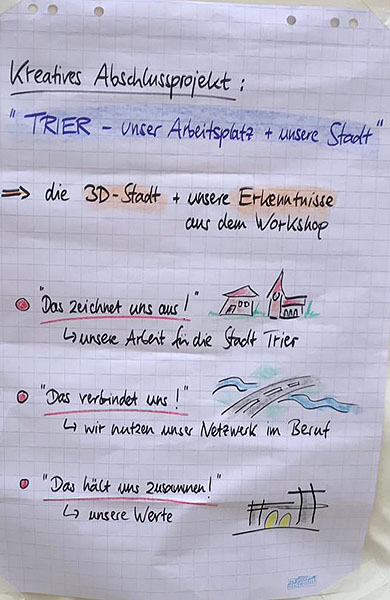 Kreatives Abschlussprojekt:
"TRIER - unser Arbeitsplatz + unsere Stadt"
⇒ die 3D-Stadt + unsere Erkenntnisse
aus dem Workshop
"Das zeichnet uns aus!"
↳ unsere Arbeit für die Stadt Trier
"Das verbindet uns!"
↳ wir nutzen unser Netzwerk im Beruf
"Das hält uns zusammen!"
↳ unsere Werte